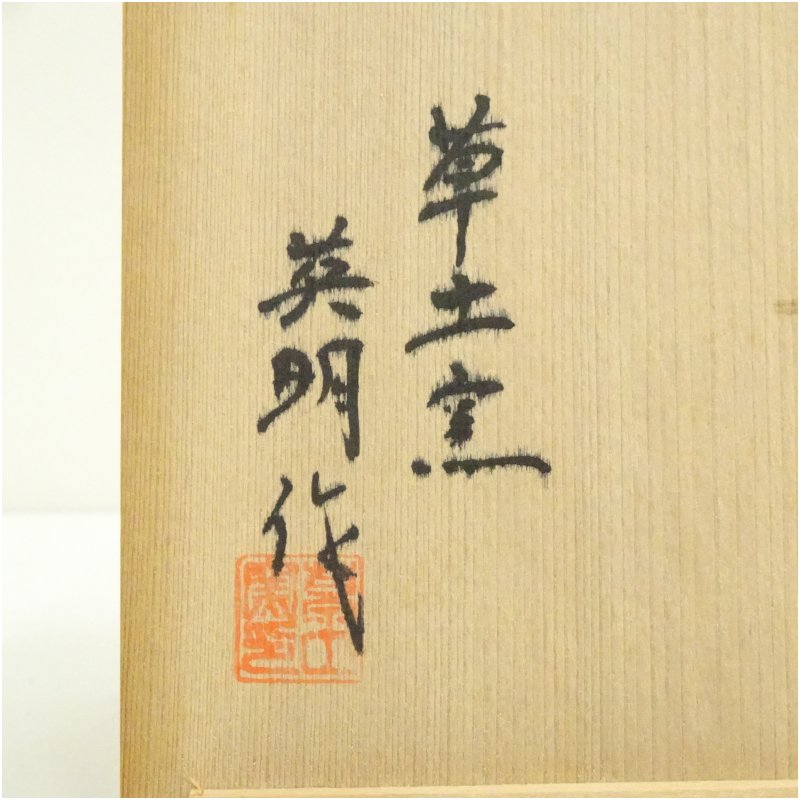 草土窯
英明作